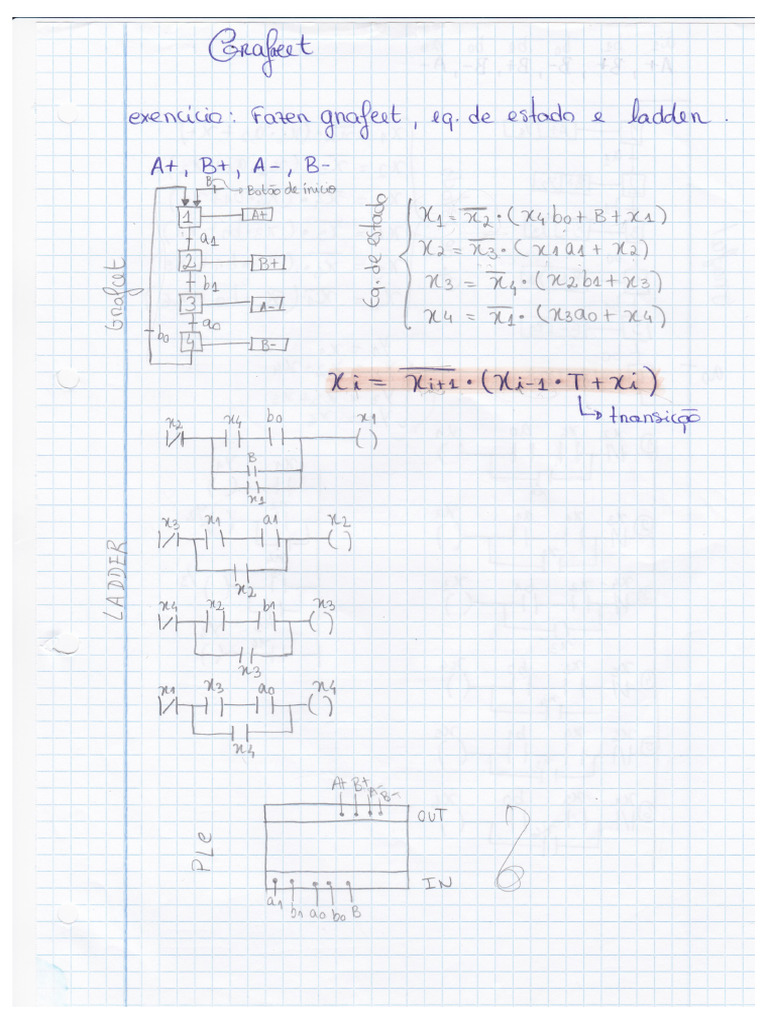 Grafcet
exercício: Fazer grafcet, eq. de estado e ladder.
A+, B+, A-, B-
B
Botão de ínicio
1 A+
a1
2 B+
b1
3 A-
a0
4 B-
b0
Grafcet
Eq. de estado
x1 = x̅2̅ · (x4 b0 + B + x1)
x2 = x̅3̅ · (x1 a1 + x2)
x3 = x̅4̅ · (x2 b1 + x3)
x4 = x̅1̅ · (x3 a0 + x4)
xi = x̅i̅+̅1̅ · (xi-1 · T + xi)
transição
LADDER
x2 x4 b0 x1
B
x1
x3 x1 a1 x2
x2
x4 x2 b1 x3
x3
x1 x3 a0 x4
x4
PLC
A+ B+ A- B-
OUT
IN
a1 b1 a0 b0 B